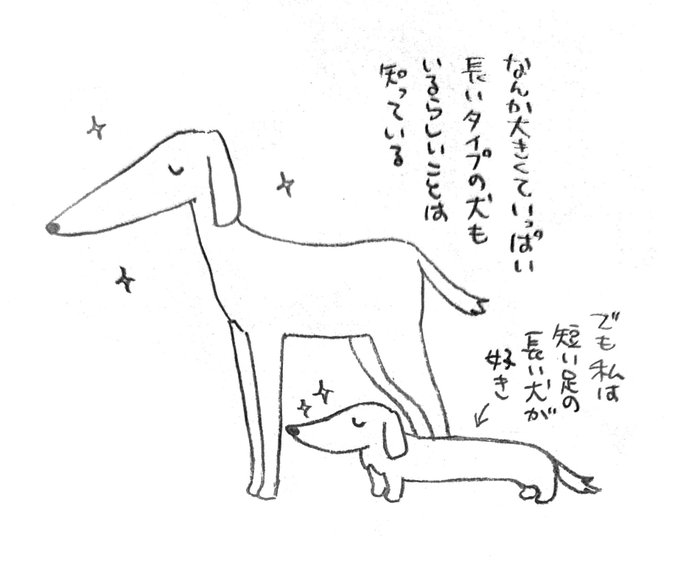 なんか大きくていっぱい
長いタイプの犬も
いるらしいことは
知っている
でも私は
短い足の
長い犬が
好き